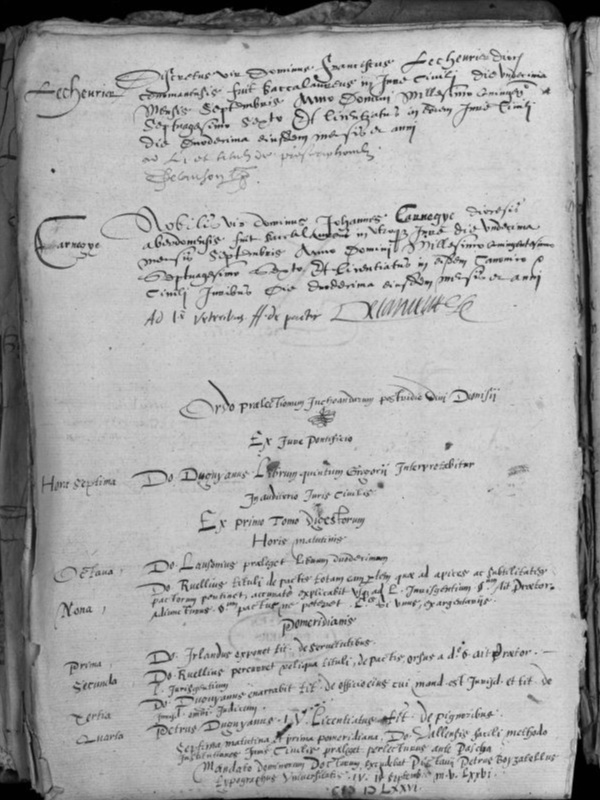 Lecheurier
Discretus vir Dominus Franciscus Lecheurier dioc
fuit baccalaureus in Jure Civili die undecima
mensis Septembris Anno Domini Millesimo quingen
Septuagesimo Sexto Et licentiatus in eodem Jure Civili
die duodecima eiusdem mensis et anni
ad L. et tituli de
Carnegye
Nobilis vir dominus Johannes Carnegye diocesis
abendonensis fuit baccalaureus in utroq Jure die undecima
mensis Septembris Anno Domini Millesimo quingentesimo
Septuagesimo Sexto Et licentiatus in eisdem Canonico &
Civili Juribus Die duodecima eiusdem mensis et anni
Ad L. veteribus ff. de pactis
Ordo praelectionum Inchoandarum postridie divi Dionisii
Ex Jure Pontificio
Hora septima Do. Duguyanus Librum quintum Gregorii Interpretabitur
In auditorio Juris Civilis
Ex primo Tomo digestorum
Horis matutinis
Octava, Do. Lausonius praeleget librum duodecimum
Nona, Do. Ruellius tituli de pactis totam quae ad apices ac subtilitates
pactorum pertinet, accurate explicabit usq ad L. Jurisgentium §. Ait Praetor
pomeridianis
Prima, Do. Irlandus exponet tit. de servitutibus.
Secunda Do. Ruellius percurret reliqua tituli de pactis orsus a d. §. ait Praetor.
L. Jurisgentium
Tertia Do. Duguyanus enarrabit tit. de officio eius cui mand. est Jurisd. et tit. de
Jurisd. omn. Judicum
Quarta Petrus Duguyanus I. V. Licentiatus tit. de pignoribus.
Septima matutina et prima pomeridiana, Do. Vallensis facili methodo
Institutiones Juris Civilis praeleget perlecturus ante Pascha
Mandato dominorum Doctorum Pictavii Petrus
Universitatis IV. Septemb. M. V. LXXVI.
LXXVI